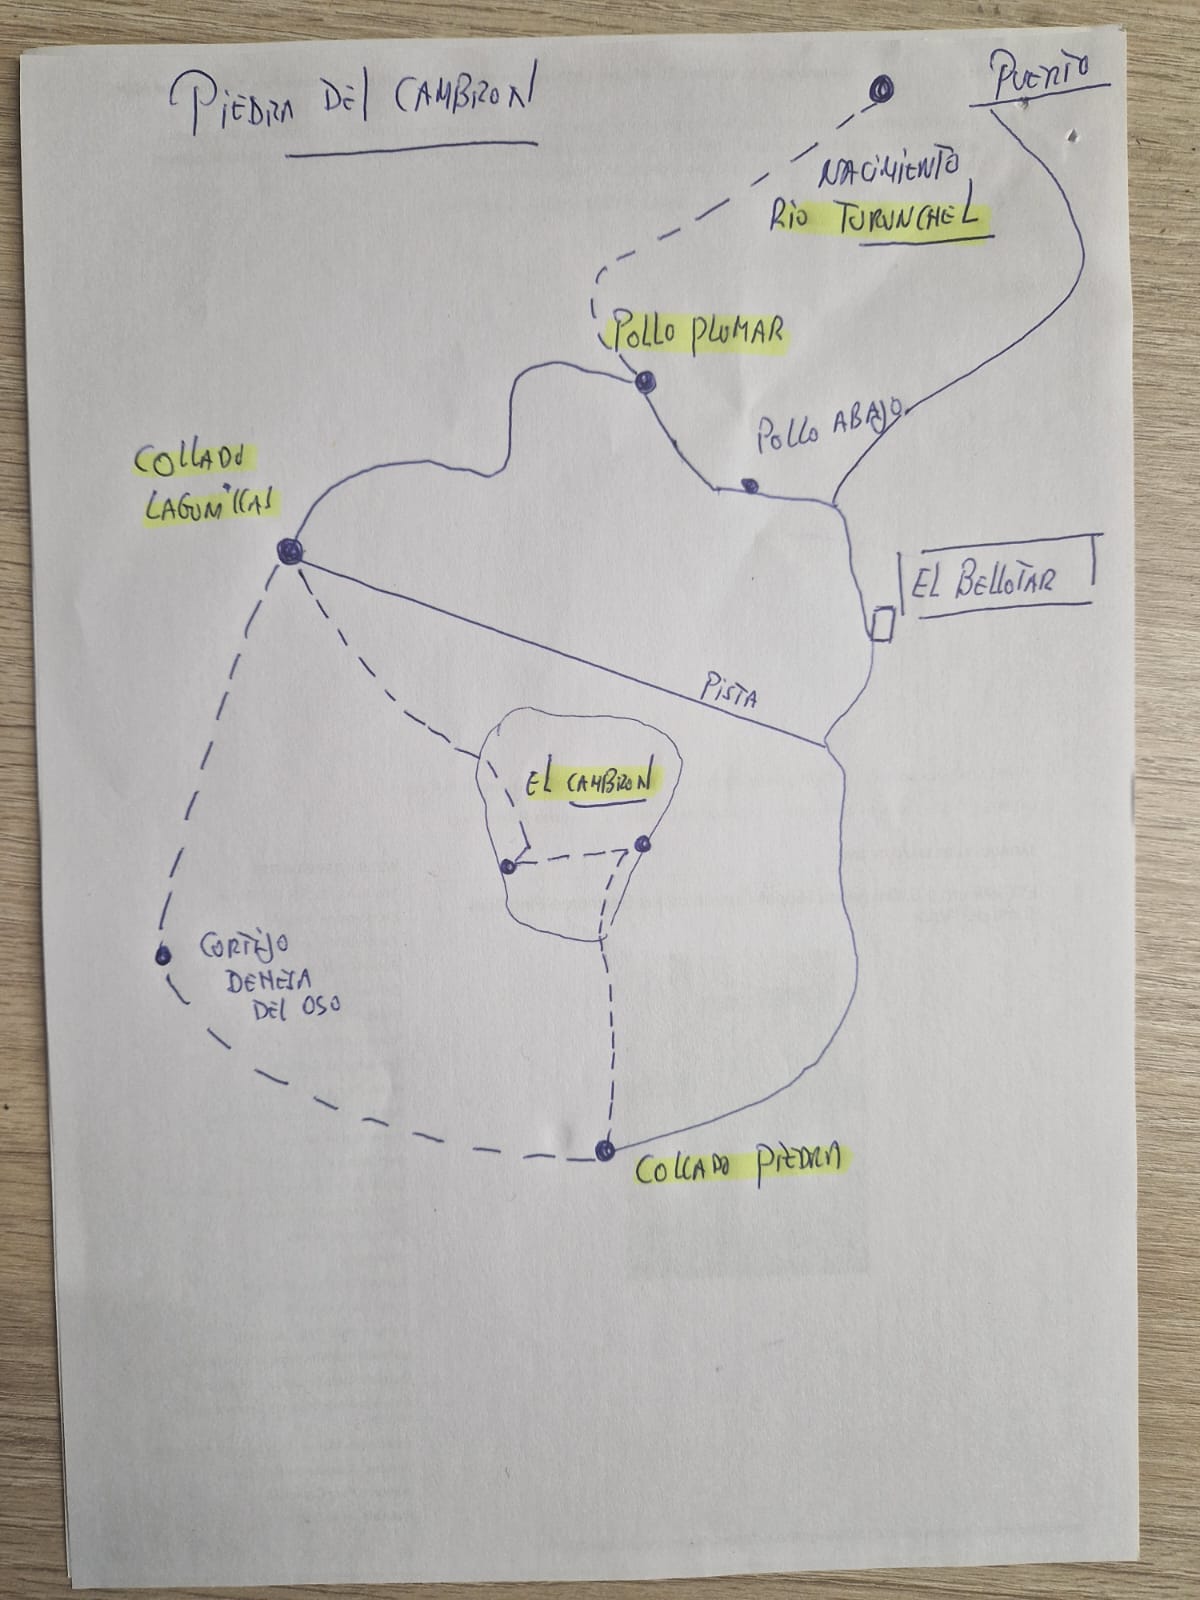 PIEDRA DEL CAMBRON
PUERTO
NACIMIENTO
RIO TURUNCHEL
POLLO PLUMAR
POLLO ABAJO
COLLADO
LAGUNILLAS
EL BELLOTAR
PISTA
EL CAMBRON
CORTIJO
DEHESA
DEL OSO
COLLADO PIEDRA